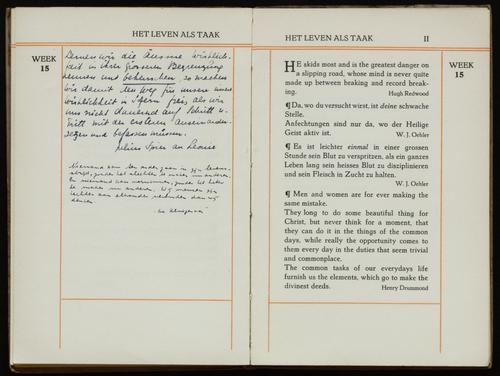 HET LEVEN ALS TAAK
WEEK
15
Lernen wir die äussere Wirklich-
keit in ihrer grossen Begrenzung
kennen und beherrschen, so machen
wir damit den Weg für unsere innere
Wirklichkeit in frei, als wir
uns nicht dauernd auf Schritt u.
Tritt mit der ersten auseinander-
setzen und befassen müssen.
Julius Spier an Leonie
Niemand kan den ander gaan in zijn levens-
strijd, zonder het slechte in
En niemand kan overwinnen, zonder het
te maken in anderen. Wij mensen zijn
aan elkander verbonden dan wij
denken
HET LEVEN ALS TAAK II
WEEK
15
HE skids most and is the greatest danger on
a slipping road, whose mind is never quite
made up between braking and record break-
ing. Hugh Redwood
¶ Da, wo du versucht wirst, ist deine schwache
Stelle.
Anfechtungen sind nur da, wo der Heilige
Geist aktiv ist. W. J. Oehler
¶ Es ist leichter einmal in einer grossen
Stunde sein Blut zu verspritzen, als ein ganzes
Leben lang sein heisses Blut zu disziplinieren
und sein Fleisch in Zucht zu halten.
W. J. Oehler
¶ Men and women are for ever making the
same mistake.
They long to do some beautiful thing for
Christ, but never think for a moment, that
they can do it in the things of the common
days, while really the opportunity comes to
them every day in the duties that seem trivial
and commonplace.
The common tasks of our everydays life
furnish us the elements, which go to make the
divinest deeds. Henry Drummond